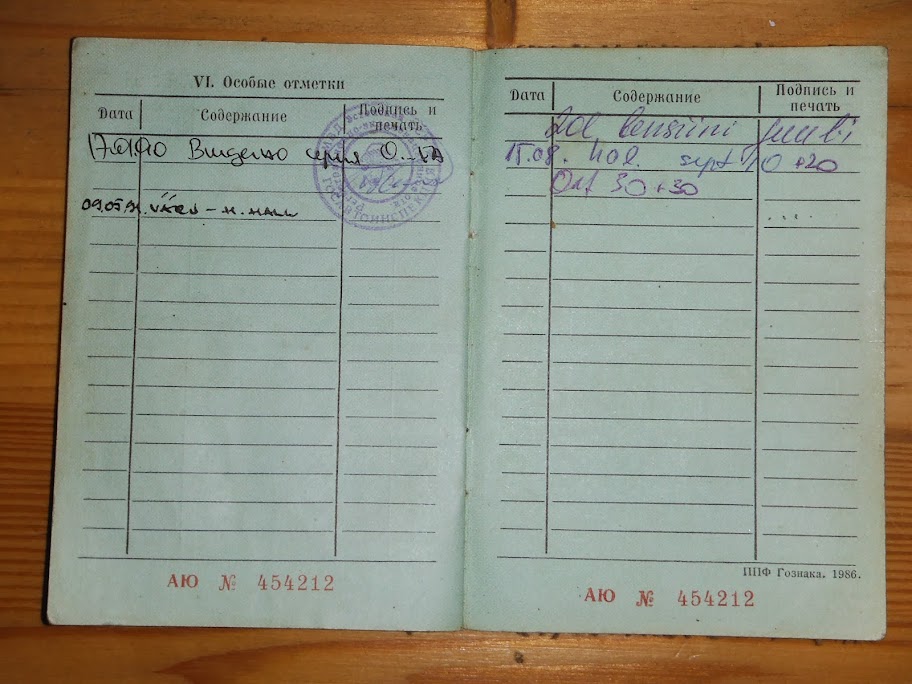 VI. Особые отметки
Дата Содержание Подпись и печать
Выдано серия
09.05.91. VÄRV – H. HALL
АЮ № 454212
Дата Содержание Подпись и печать
20l bensiini
15.08. 40l. sept 10 +20
Okt 30+30
ППФ Гознака. 1986.
АЮ № 454212